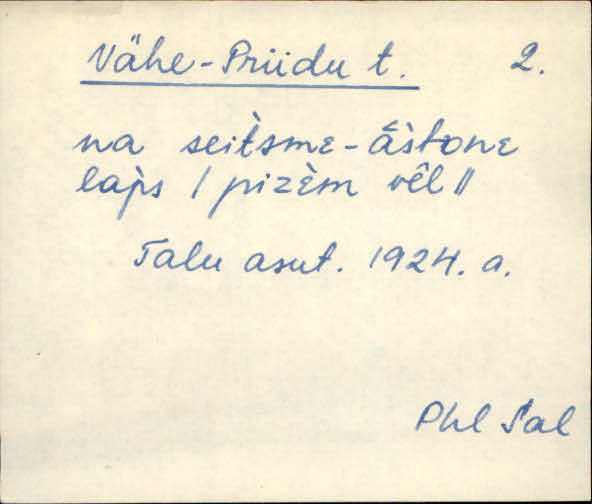 Vähe-Priidu t. 2.
na seit̀smε-ā́s̀tonε
lap̀s / pizèm vêl ||
Talu asut. 1924. a.
Phl Pal